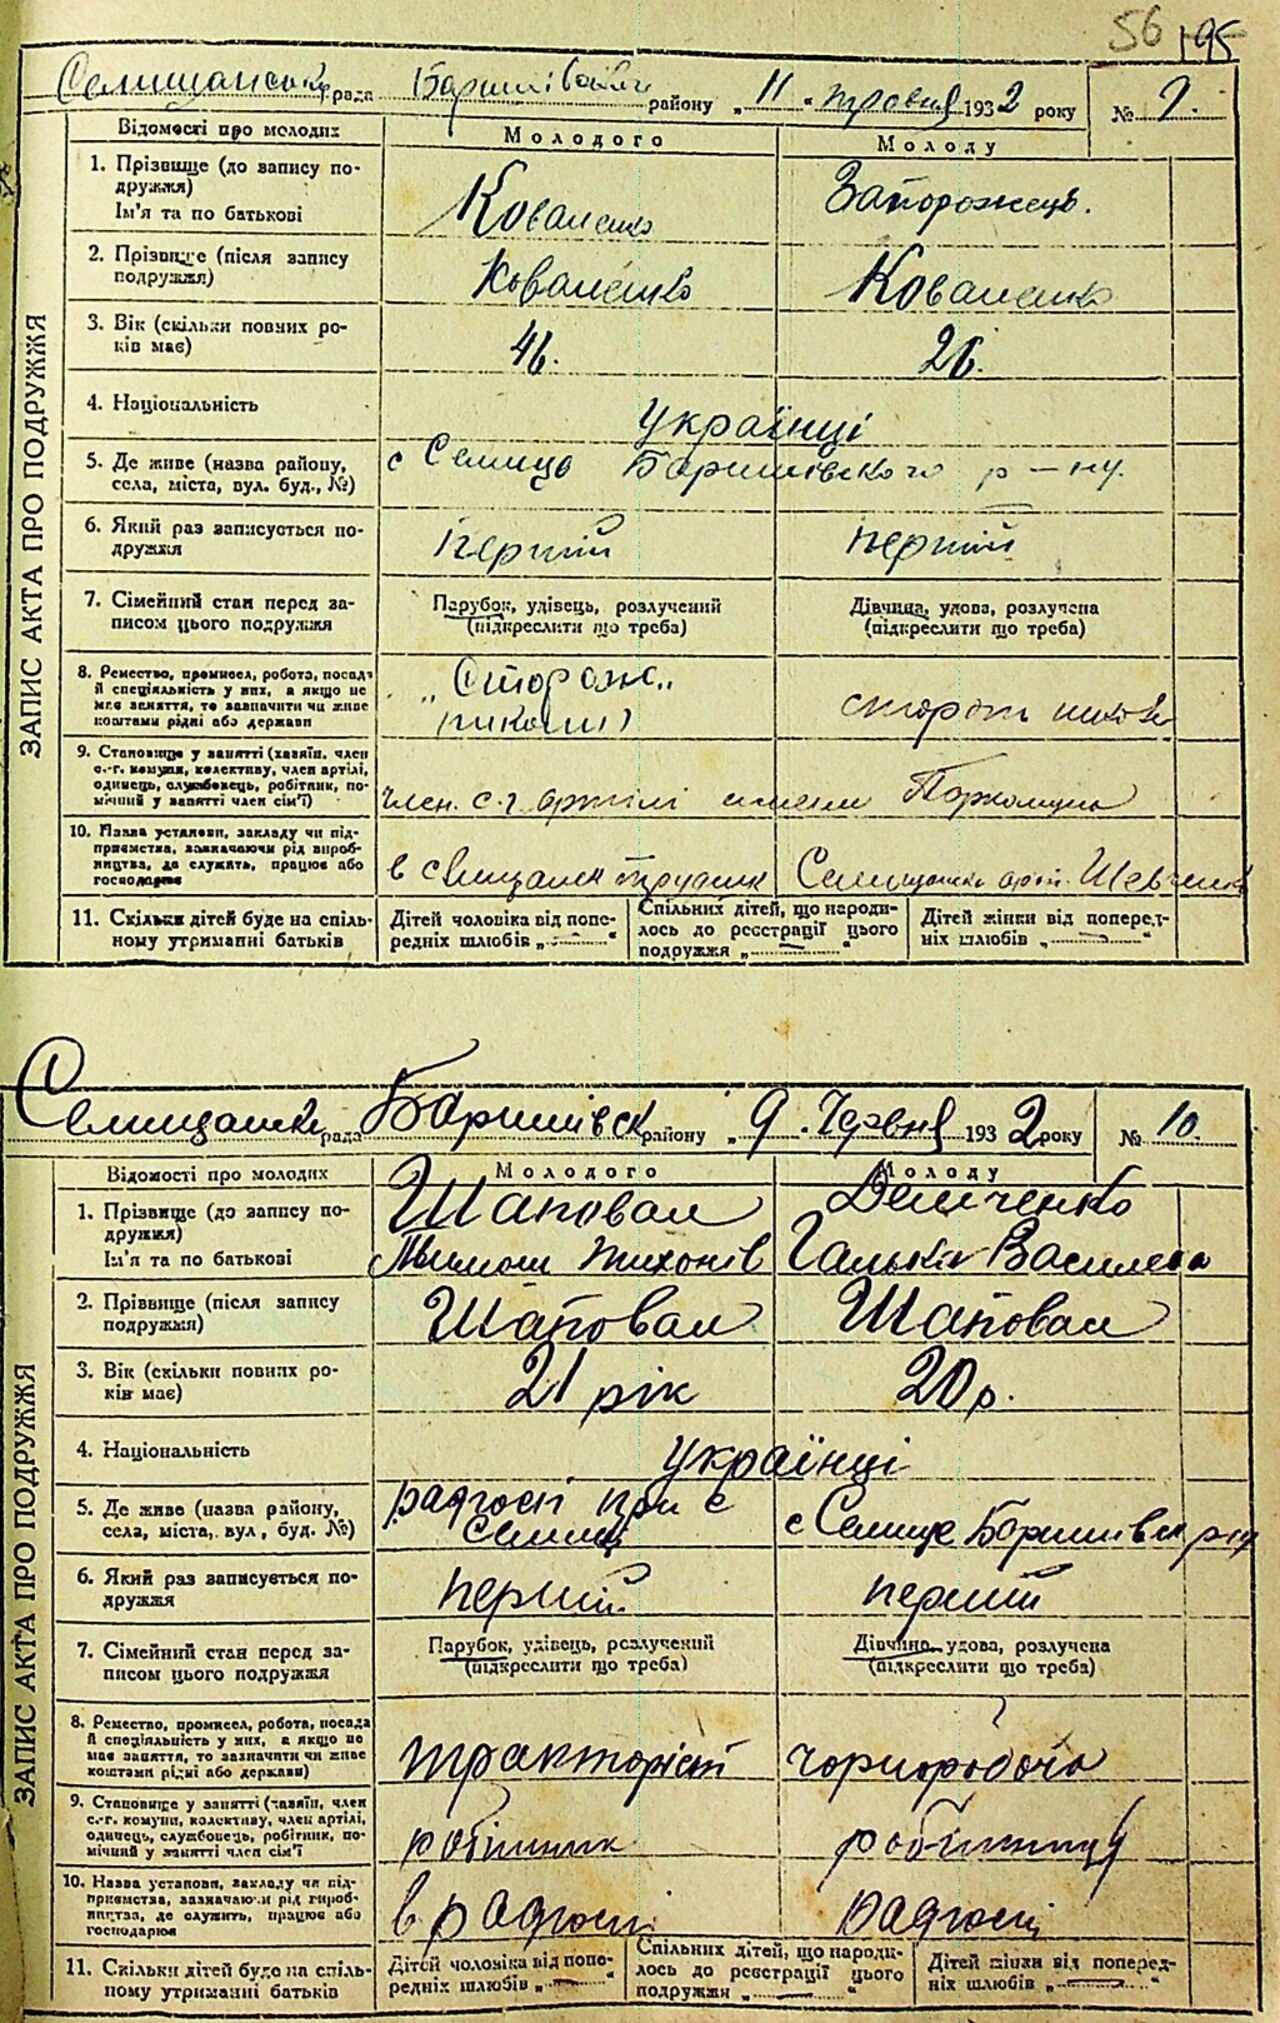 56 195
Селищанська рада Баришівськ району „ 11 " травня 1932 року № 9.
ЗАПИС АКТА ПРО ПОДРУЖЖЯ
Відомості про молодих Молодого Молоду
1. Прізвище (до запису по-
дружжя)
Ім'я та по батькові Коваленко Запорожець.
2. Прізвище (після запису
подружжя) Коваленко Коваленко
3. Вік (скільки повних ро-
ків має) 26.
4. Національність українці
5. Де живе (назва району,
села, міста, вул. буд., №) с Селище Баришівского р-ну.
6. Який раз записується по-
дружжя перший перший
7. Сімейний стан перед за-
писом цього подружжя Парубок, удівець, розлучений
(підкреслити що треба) Дівчина, удова, розлучена
(підкреслити що треба)
8. Ремество, промисел, робота, посада
й спеціяльність у них, а якщо не
має заняття, то зазначити чи живе
коштами рідні або держави „Сторож„
школи
9. Становище у занятті (хазяїн, член
с.-г. комуни, колективу, член артілі,
одинець, службовець, робітник, по-
мічний у занятті член сім'ї) член. с.г. артілі имени
10. Назва установи, закладу чи під-
приємства, зазначаючи рід вироб-
ництва, де служить, працює або
господарює в Селищанск Селищанск арт. Шевченка
11. Скільки дітей буде на спіль-
ному утриманні батьків Дітей чоловіка від попе-
редніх шлюбів „ — " Спільних дітей, що народи-
лось до реєстрації цього
подружжя „ — " Дітей жінки від поперед-
ніх шлюбів „ — "
Селищанск рада Баришівск району „ 9 . Червня 1932 року № 10.
ЗАПИС АКТА ПРО ПОДРУЖЖЯ
Відомості про молодих Молодого Молоду
1. Прізвище (до запису по-
дружжя) Шаповал Демченко
Ім'я та по батькові Тихонів Галька Василева
2. Прізвище (після запису
подружжя) Шаповал Шаповал
3. Вік (скільки повних ро-
ків має) 21 рік 20 р.
4. Національність українці
5. Де живе (назва району,
села, міста, вул, буд. №) радгосп при с
Селищ с Селище Баришівск р-ну
6. Який раз записується по-
дружжя перший перший
7. Сімейний стан перед за-
писом цього подружжя Парубок, удівець, розлучений
(підкреслити що треба) Дівчина, удова, розлучена
(підкреслити що треба)
8. Ремество, промисел, робота, посада
й спеціяльність у них, а якщо не
має заняття, то зазначити чи живе
коштами рідні або держави) тракторіст чорноробоча
9. Становище у занятті (хазяїн, член
с.-г. комуни, колективу, член артілі,
одинець, службовець, робітник, по-
мічний у занятті член сім'ї робітник робітниця
10. Назва установи, закладу чи під-
приємства, зазначаючи рід вироб-
ництва, де служить, працює або
господарює в радгоспі радгоспі
11. Скільки дітей буде на спіль-
ному утриманні батьків Дітей чоловіка від попе-
редніх шлюбів „ — " Спільних дітей, що народи-
лось до реєстрації цього
подружжя „ — " Дітей жінки від поперед-
ніх шлюбів „ — "